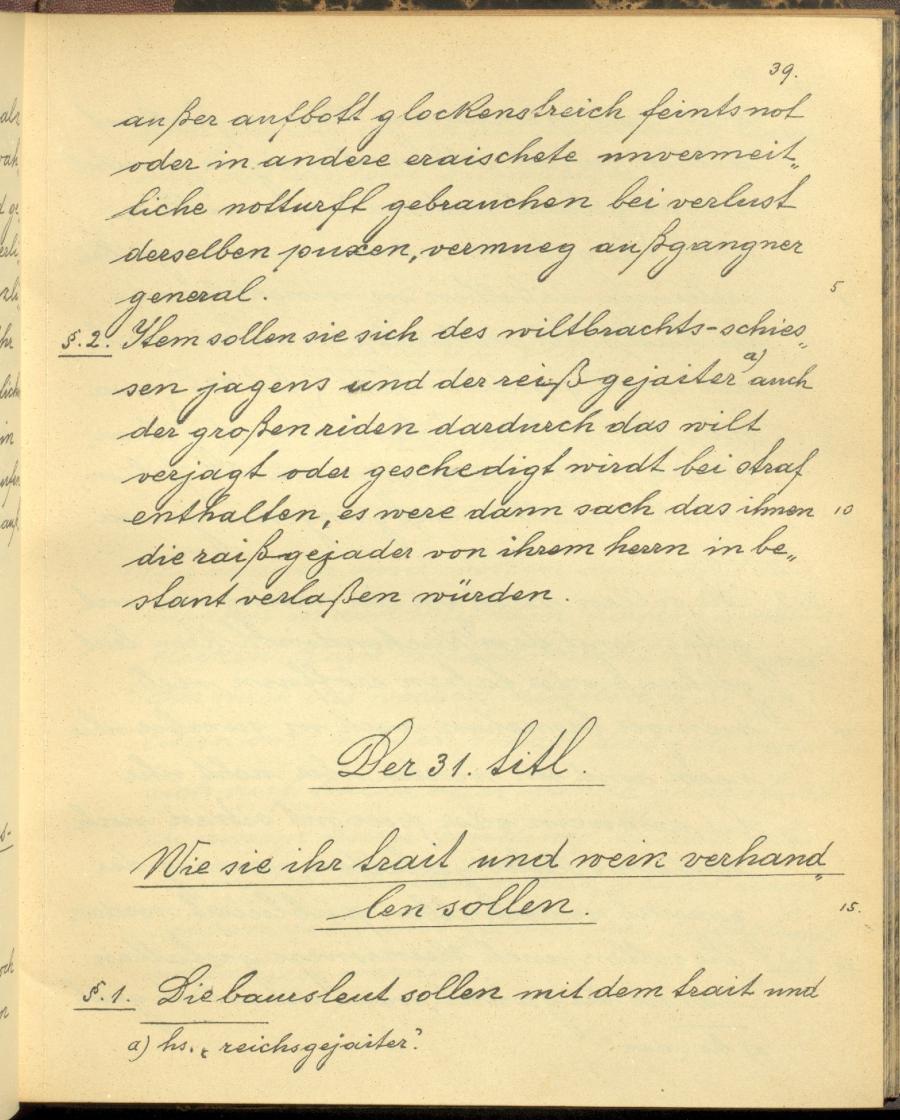 39.
außer aufbott glockenstreich feintsnot
oder in andere eraischete unvermeit„
liche notturft gebrauchen bei verlust
derselben puxen, vermueg außgangner
general. 5
§. 2. Item sollen sie sich des wiltbrachts-schies„
sen jagens und der reißgejaiter a) auch
der großen riden dardurch das wilt
verjagt oder geschedigt wirdt bei straf
enthalten, es were dann sach das ihnen 10
die raißgejader von ihrem herrn in be„
stant verlaßen würden.
Der 31. titl.
Wie sie ihr trait und wein verhand„
len sollen. 15.
§. 1. Die baursleut sollen mit dem trait und
a) hs. „reichsgejaiter“.